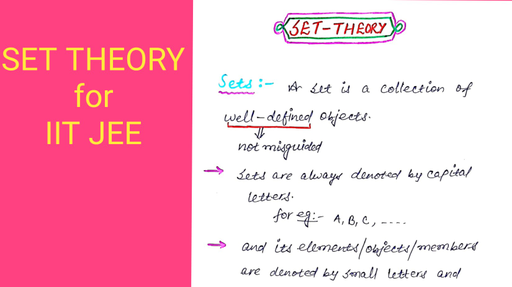 SET THEORY
for
IIT JEE
SET-THEORY
Sets :- A set is a collection of
well-defined objects.
not misguided
→ Sets are always denoted by capital
letters.
for eg:- A, B, C, .....
→ and its elements/objects/members
are denoted by small letters and